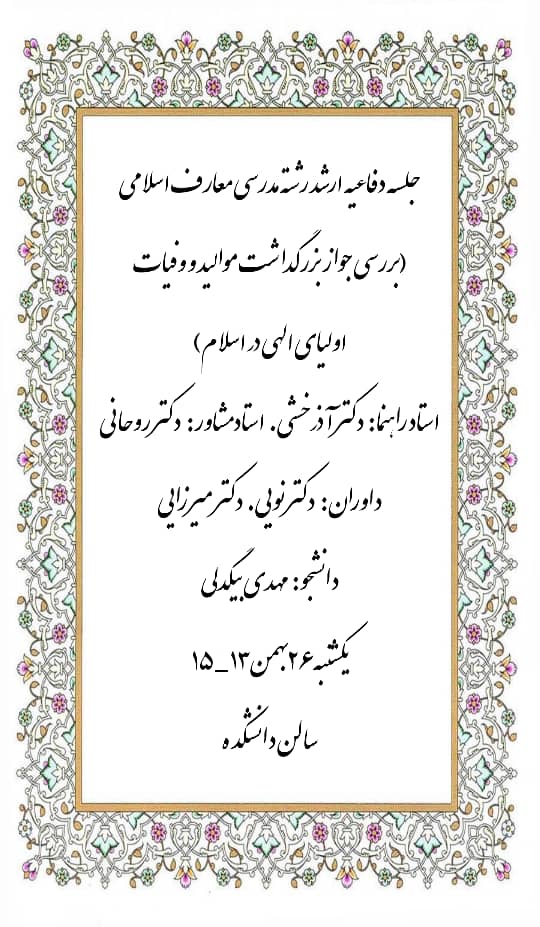 جلسه دفاعیه ارشد رشته مدرسی معارف اسلامی
(بررسی جواز بزرگداشت موالید و وفیات
اولیای الهی در اسلام)
استاد راهنما: دکتر آذرخشی. استاد مشاور: دکتر روحانی
داوران: دکتر نویی. دکتر میرزایی
دانشجو: مهدی بیگدلی
یکشنبه ۲۶ بهمن ۱۳_۱۵
سالن دانشکده